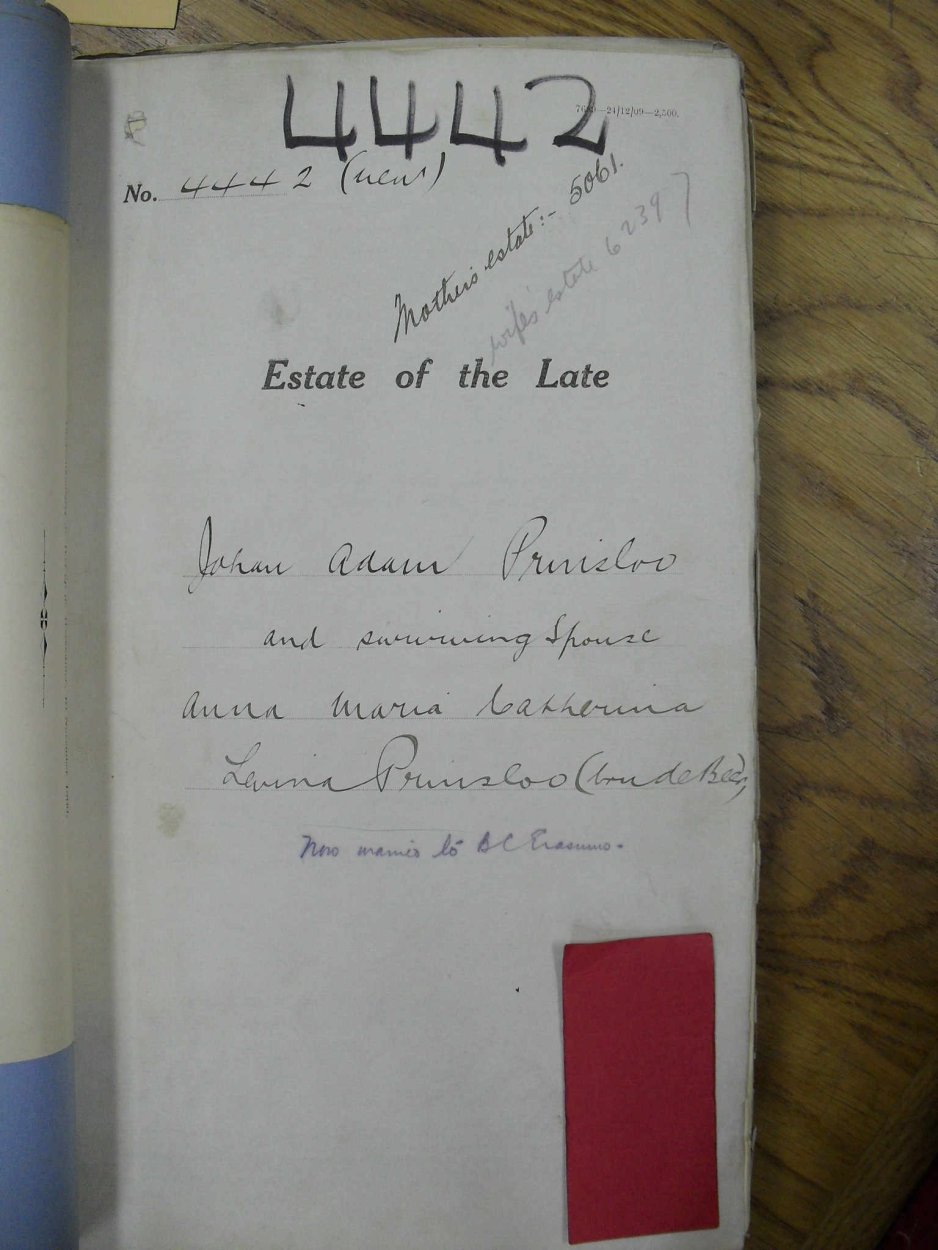 4442
24/12/09—2,500.
No. 4442 (new)
Mother's estate:- 5061.
wife's estate 6239
Estate of the Late
Johan Adam Prinsloo
and surviving Spouse
Anna Maria Catherina
Levina Prinsloo (born de Beer)
Now married to BC Erasmus.